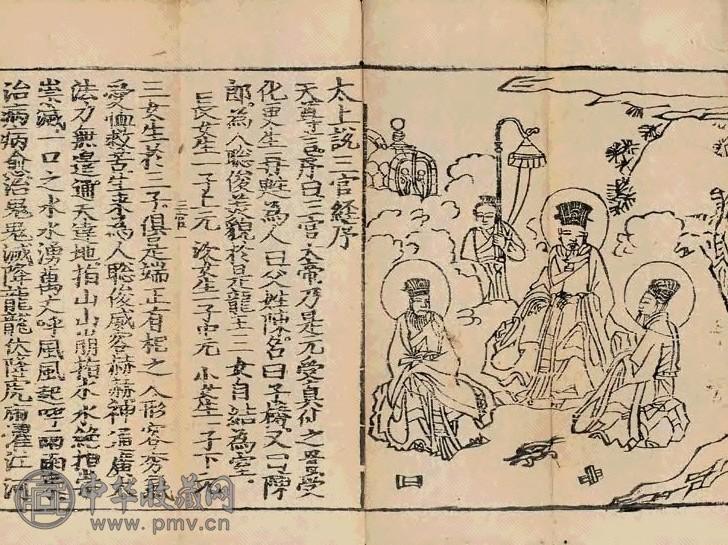 太上說三官經序
天尊言序曰三官大帝乃是元受真仙之骨受
化更生再甦為人曰父姓陳名曰子檮又曰陳
郎為人聰俊美貌於是龍王三女自結為室
長女生一子上元 次女生一子中元 小女生一子下元
三官一
三女生於三子俱是端正有相之人形容秀
愛恤救苦生來為人聰俊威容赫赫神通廣
法力無邊通天達地指山山崩指水水絕指
滅一口之水水湧萬丈呼風風起呼雨雨
治病病愈治鬼鬼滅降龍龍伏降虎 江河
中华收藏网
www.pmv.cn